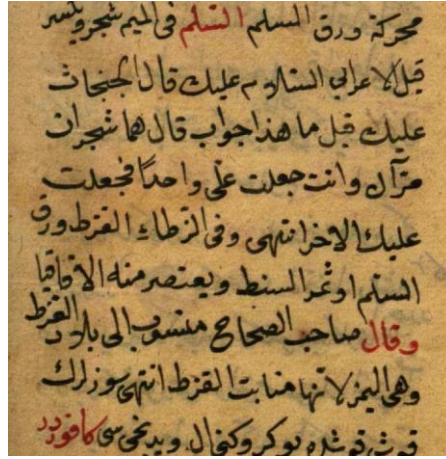 محركة ورق السلم السلم في الميم شجر ويكسر
قيل لاعرابي السلام عليك قال الجثجاث
عليك قيل ما هذا جواب قال هما شجران
مرّان وانت جعلت علي واحدًا فجعلت
عليك الاخر انتهى وفي القرظاء القرظ ورق
السلم او ثمر السنط ويعتصر منه الاقاقيا
وقال صاحب الصحاح منسوب الى بلاد القرظ
وهي اليمن لانها منابت القرظ انتهى سوزلرك